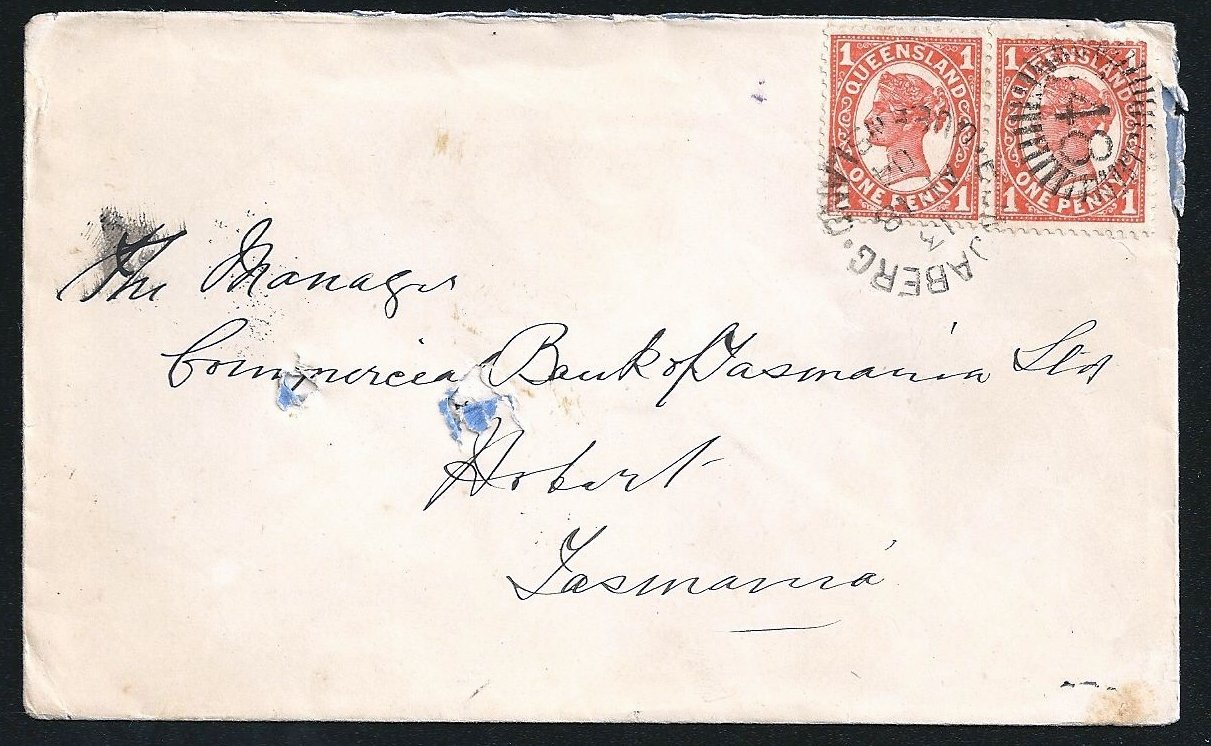 1 QUEENSLAND 1
1 ONE PENNY 1
1 QUEENSLAND 1
1 ONE PENNY 1
148
QUEENSLAND
The Manager
Commercial Bank of Tasmania Ltd
Hobart
Tasmania